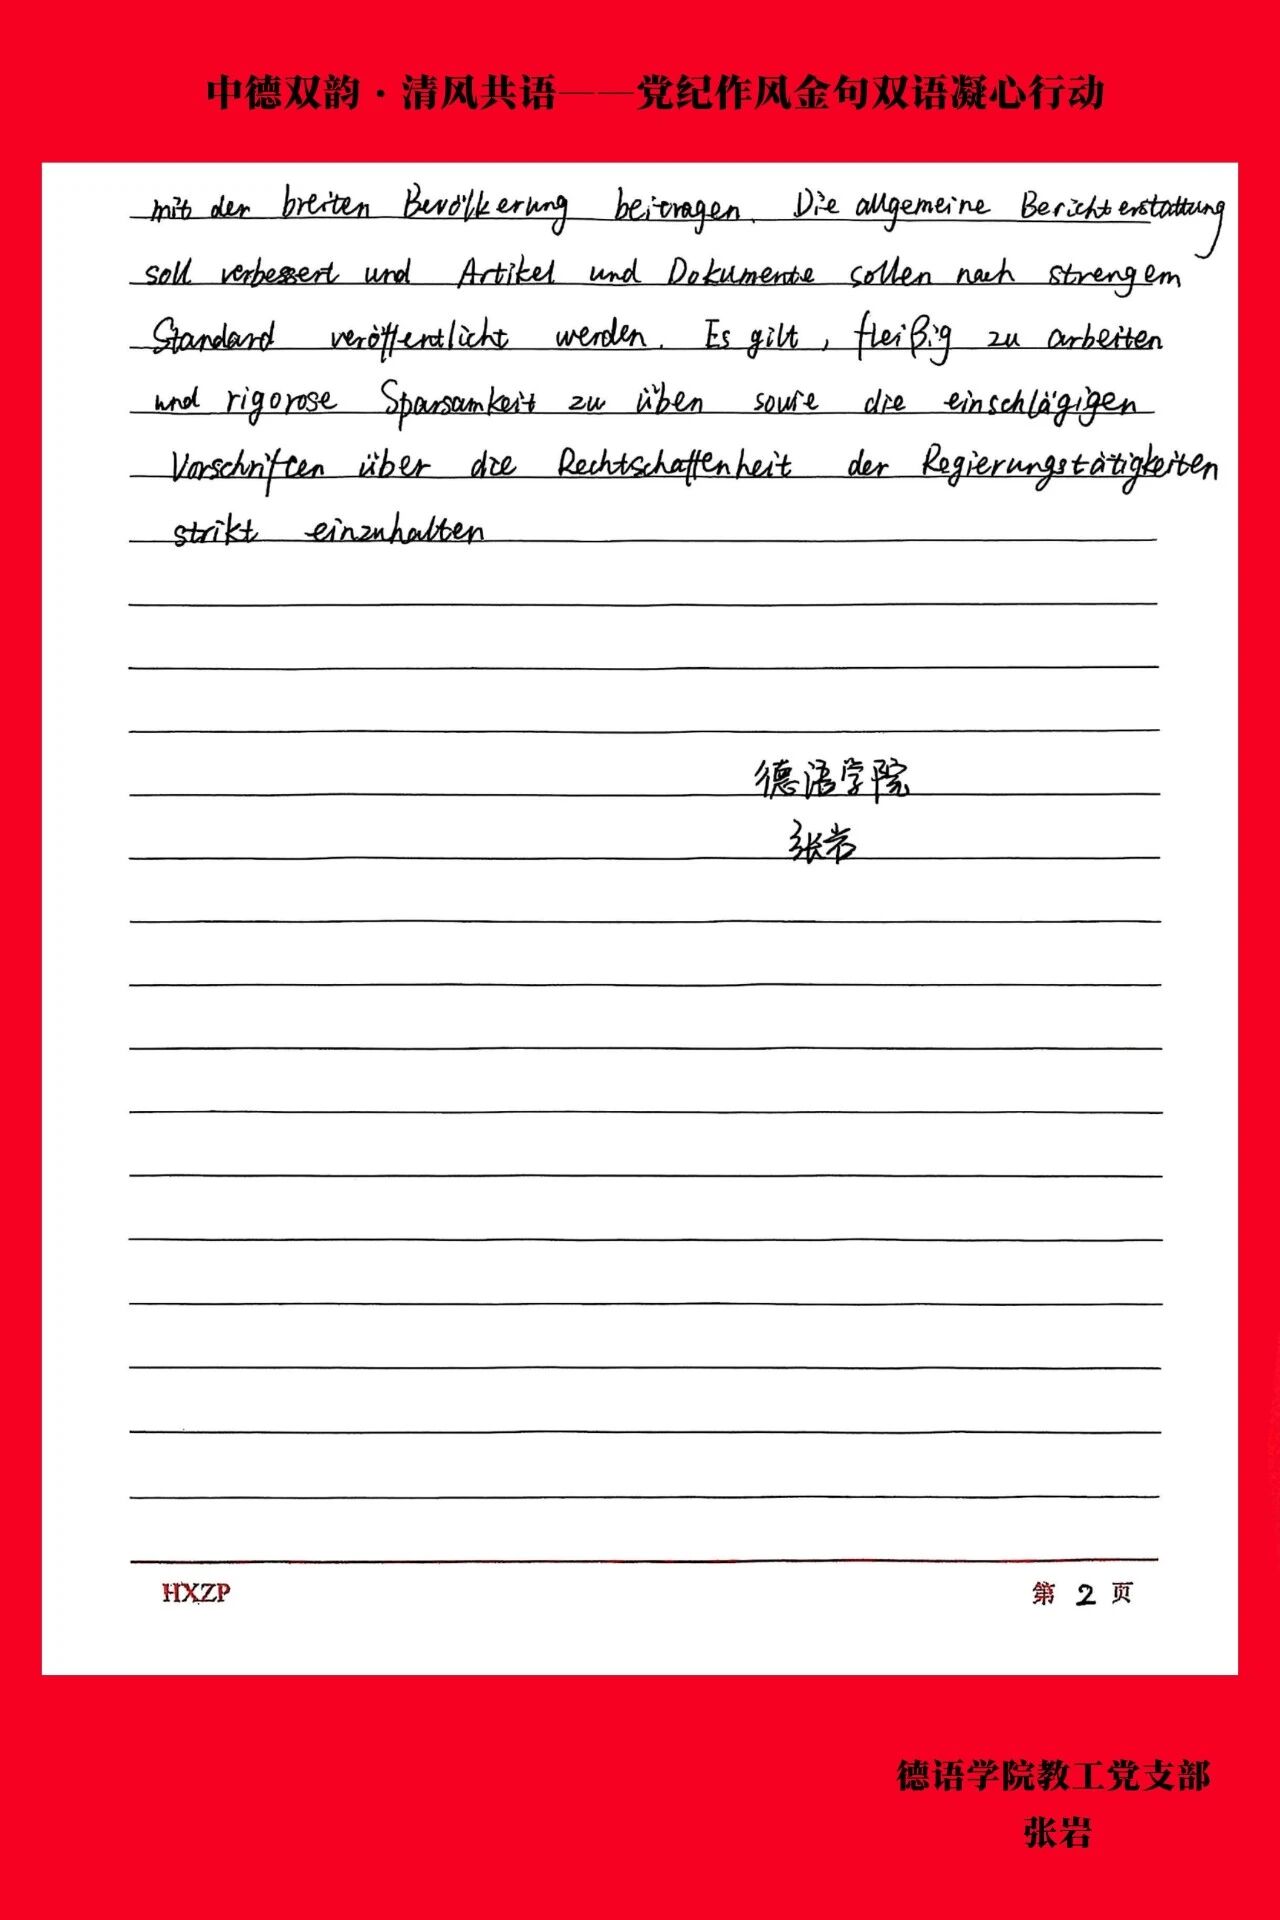 中德双韵·清风共语——党纪作风金句双语凝心行动
mit der breiten Bevölkerung beitragen. Die allgemeine Berichterstattung
soll verbessert und Artikel und Dokumente sollen nach strengem
Standard veröffentlicht werden. Es gilt, fleißig zu arbeiten
und rigorose Sparsamkeit zu üben sowie die einschlägigen
Vorschriften über die Rechtschaffenheit der Regierungstätigkeiten
strikt einzuhalten
德语学院
张岩
HXZP 第 2 页
德语学院教工党支部
张岩